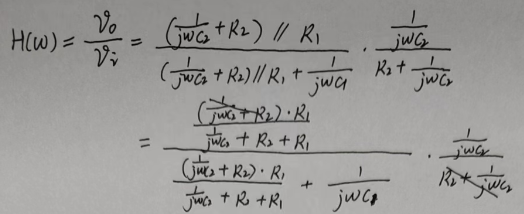 H(ω) = \frac{v_o}{v_i} = \frac{(\frac{1}{jωC_2} + R_2) // R_1}{(\frac{1}{jωC_2} + R_2) // R_1 + \frac{1}{jωC_1}} · \frac{\frac{1}{jωC_2}}{R_2 + \frac{1}{jωC_2}}
= \frac{\frac{(\frac{1}{jωC_2} + R_2) · R_1}{\frac{1}{jωC_2} + R_2 + R_1}}{\frac{(\frac{1}{jωC_2} + R_2) · R_1}{\frac{1}{jωC_2} + R_2 + R_1} + \frac{1}{jωC_1}} · \frac{\frac{1}{jωC_2}}{R_2 + \frac{1}{jωC_2}}